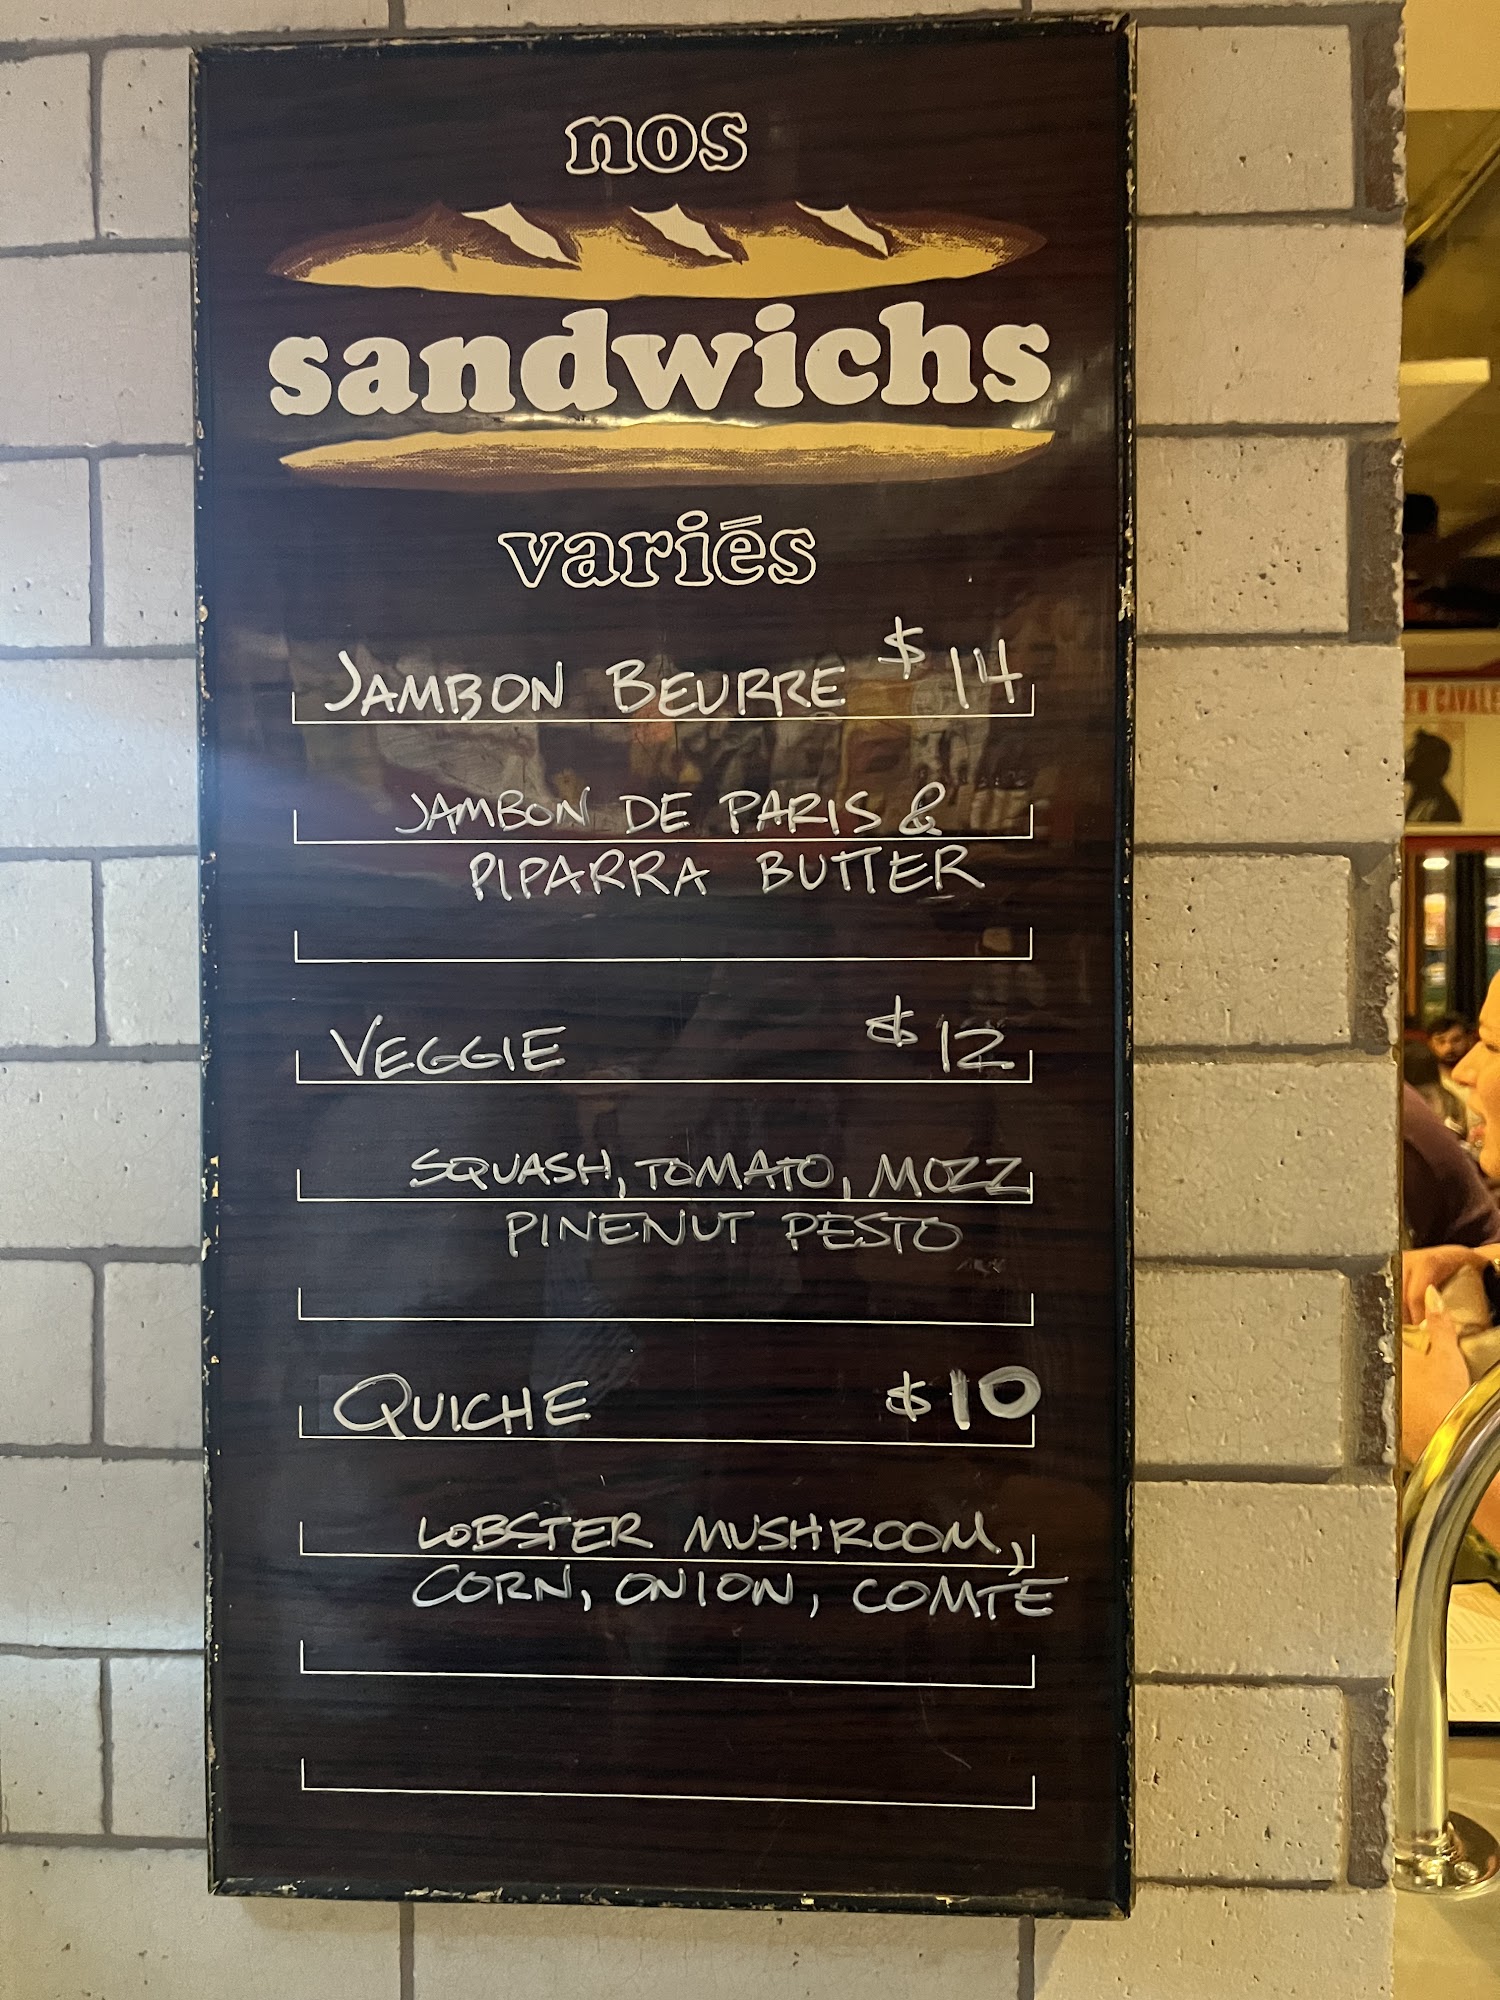 nos
sandwichs
variés
JAMBON BEURRE $14
JAMBON DE PARIS &
PIPARRA BUTTER
VEGGIE $12
SQUASH, TOMATO, MOZZ
PINENUT PESTO
QUICHE $10
LOBSTER MUSHROOM,
CORN, ONION, COMTE